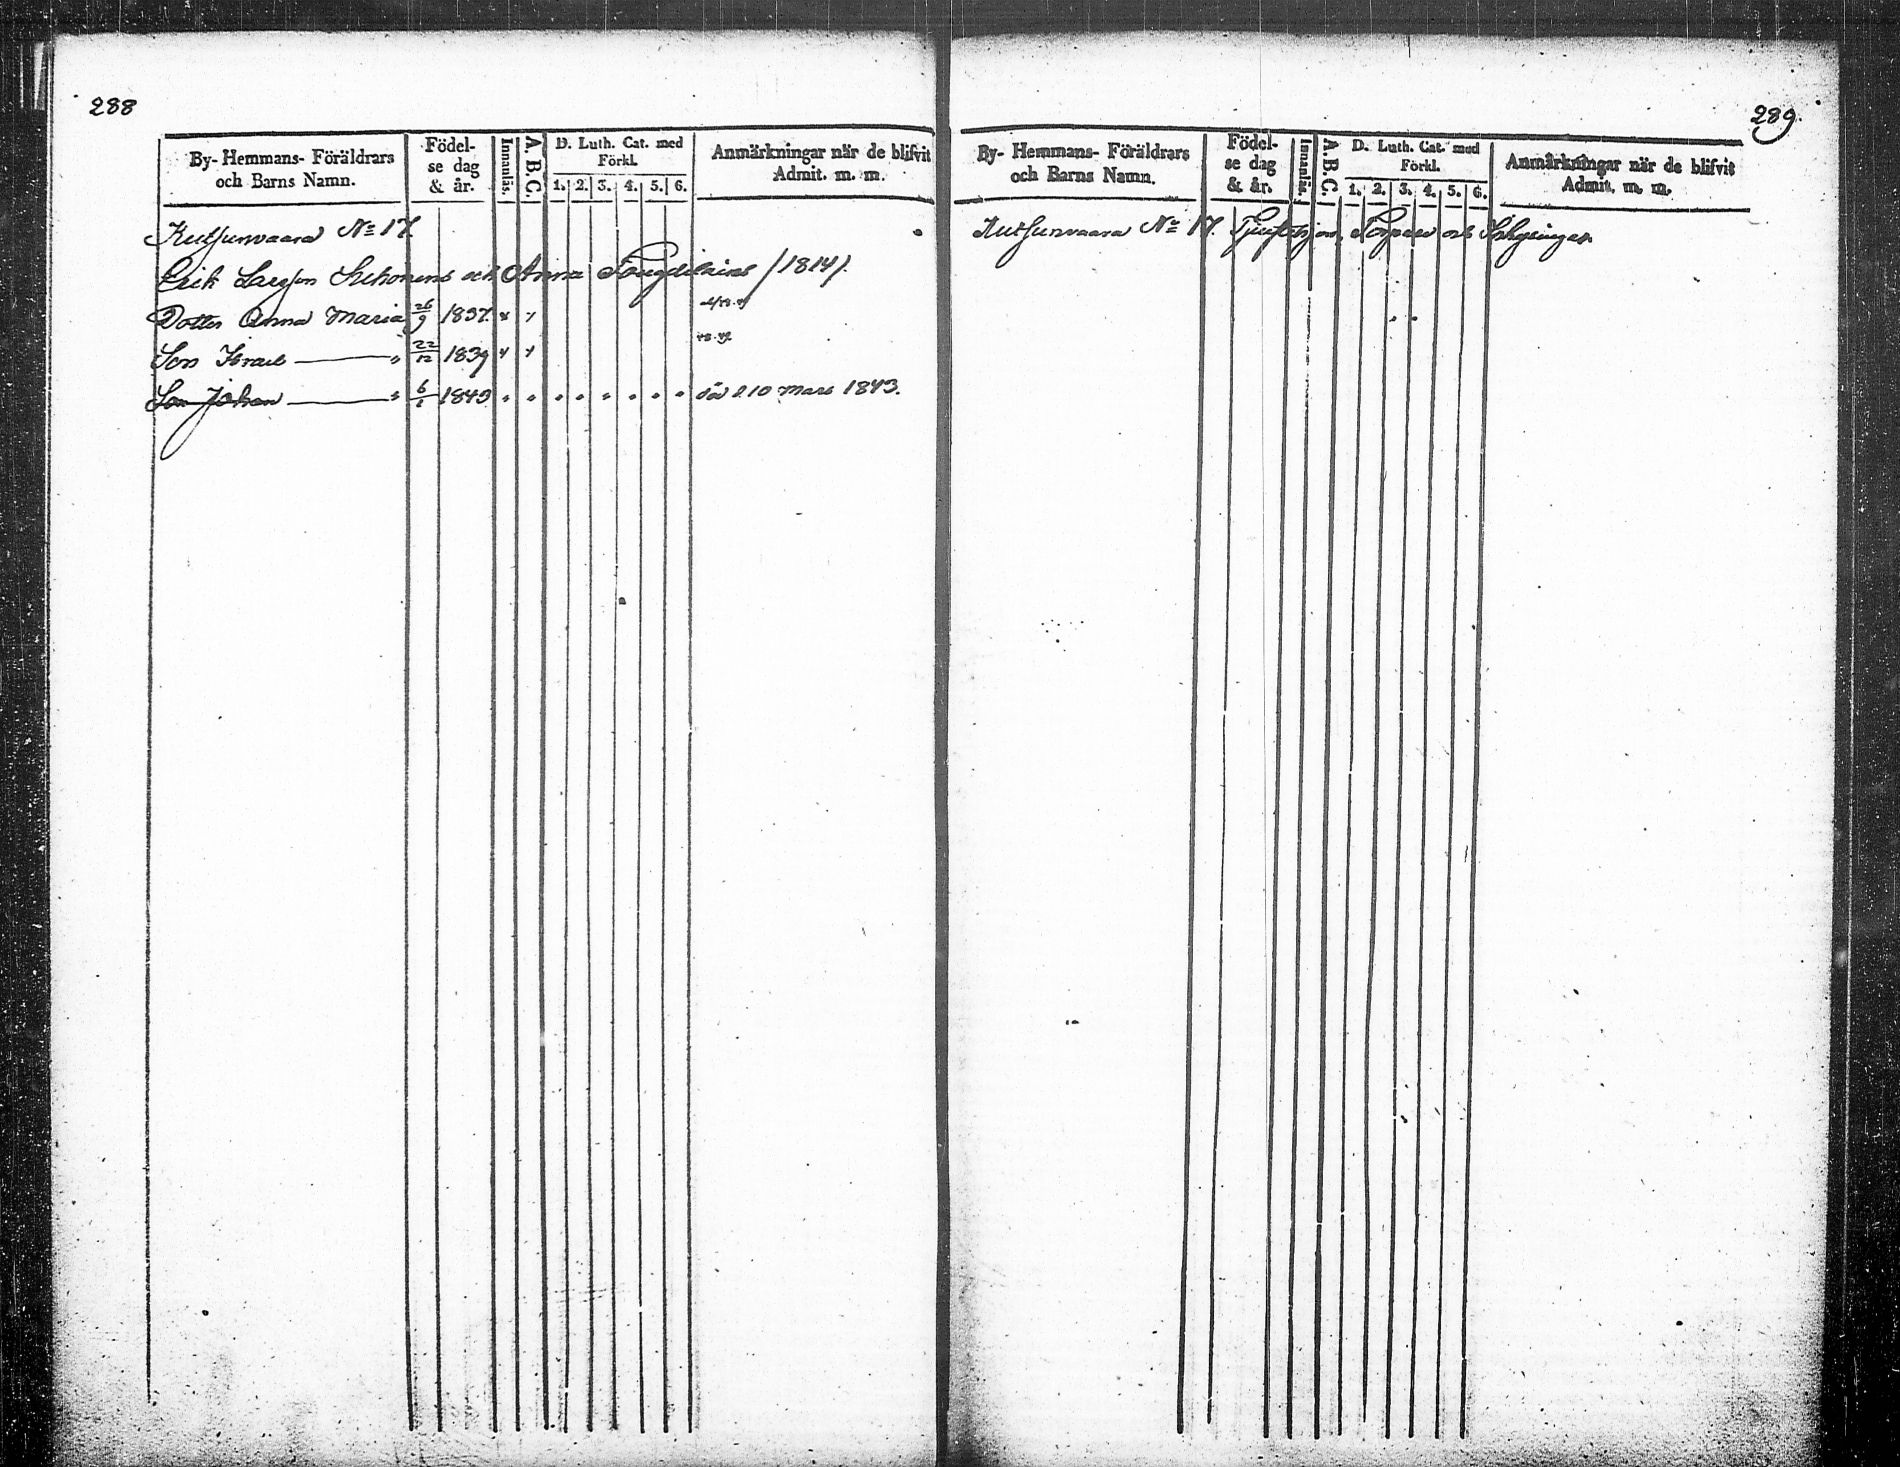 288
By- Hemmans- Föräldrars och Barns Namn.
Födel-se dag & år.
Innanläs.
A.B.C.
D. Luth. Cat. med Förkl.
1. 2. 3. 4. 5. 6.
Anmärkningar när de blifvit Admit. m. m.
Kutsunvaara No 17.
Erik Larsson och Anna /1814/.
Dotter Anna Maria 26/9 1837
Son Israel " 22/12 1839
Son Johan " 1843 död d. 10 Mars 1843.
289.
By- Hemmans- Föräldrars och Barns Namn.
Födel-se dag & år.
Innanläs.
A.B.C.
D. Luth. Cat. med Förkl.
1. 2. 3. 4. 5. 6.
Anmärkningar när de blifvit Admit. m. m.
Kutsunvaara No 17. Torpare och Inhysingar.